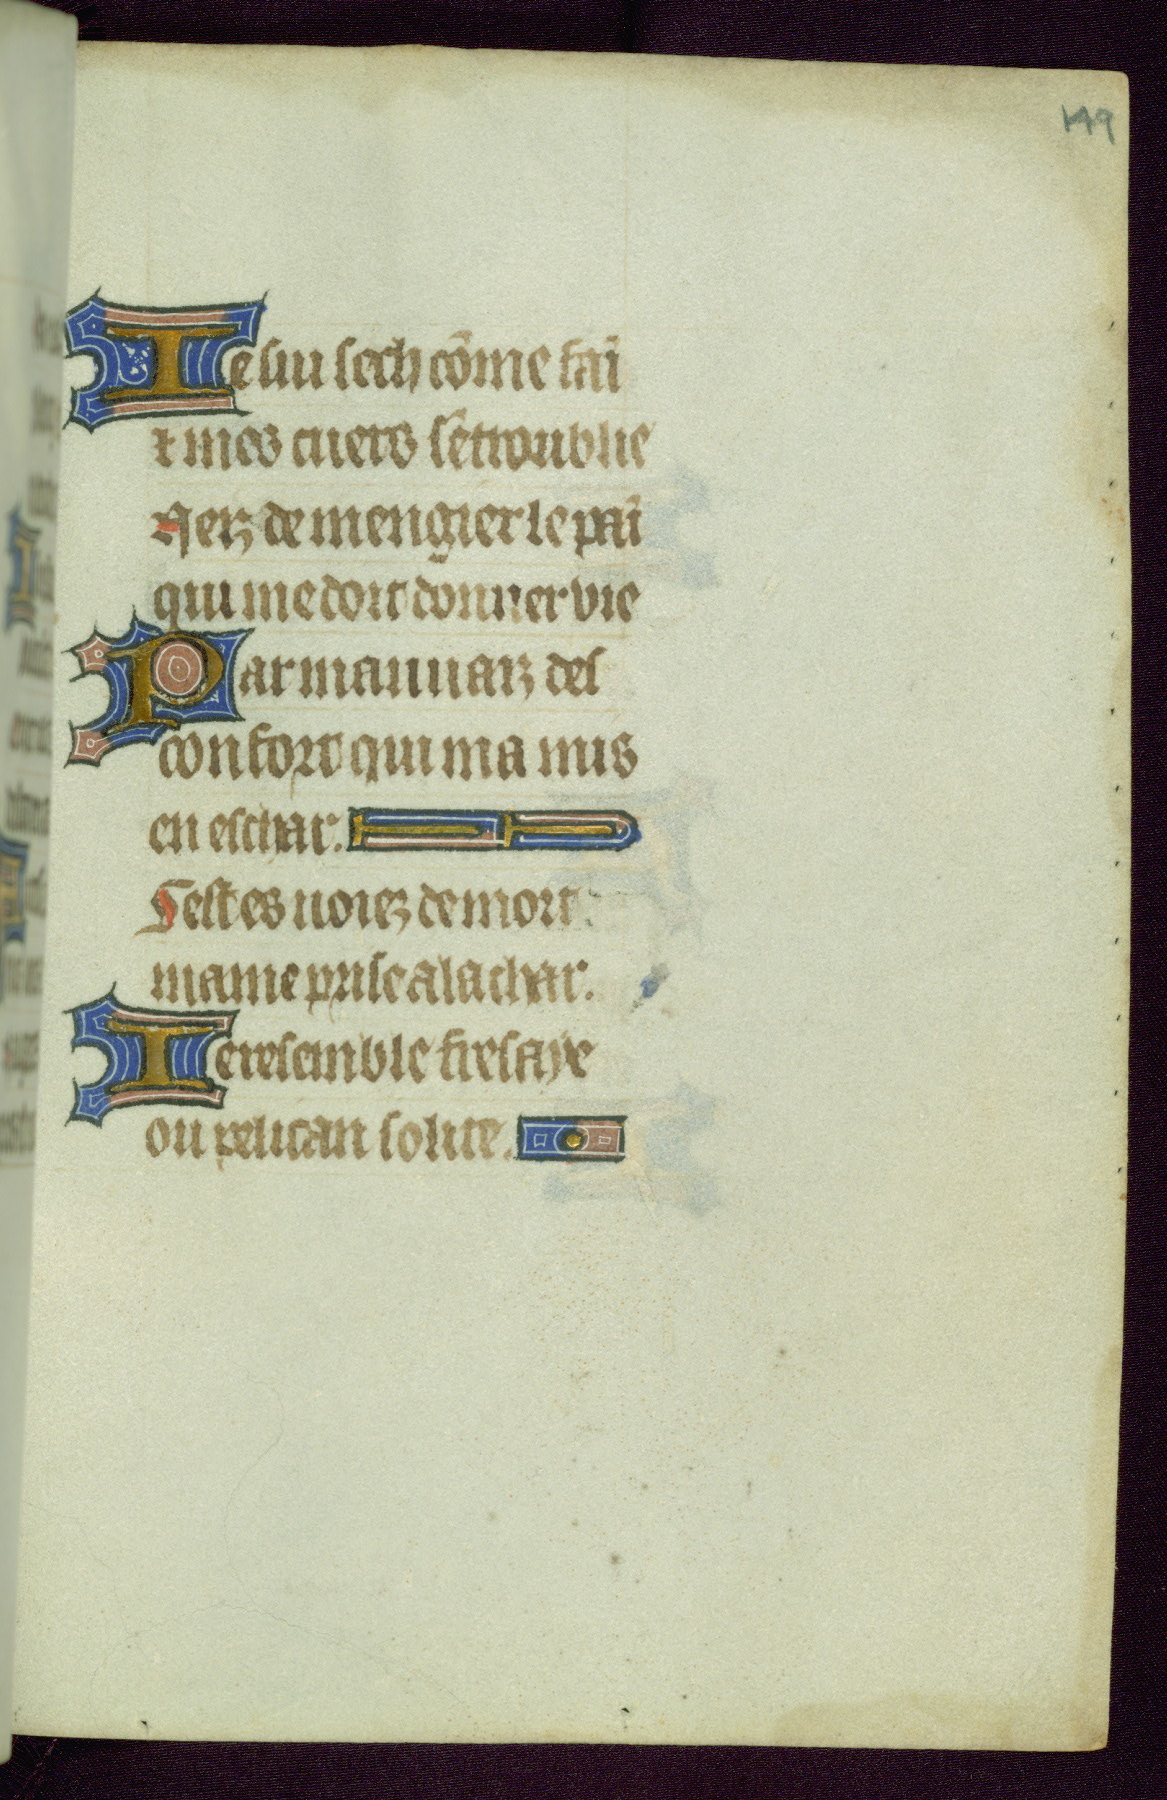 149
Je sui sech cōme fai᷑
⁊ mes cuers s'ētroublie
Nerz de mengier le pai᷑
qui me doit donner vie
Par mauuaiz des
confort qui ma mis
en eschar.
Cest es noiez de mort
mamie prise a la char.
Je resemble fresaye
ou pelican solite.